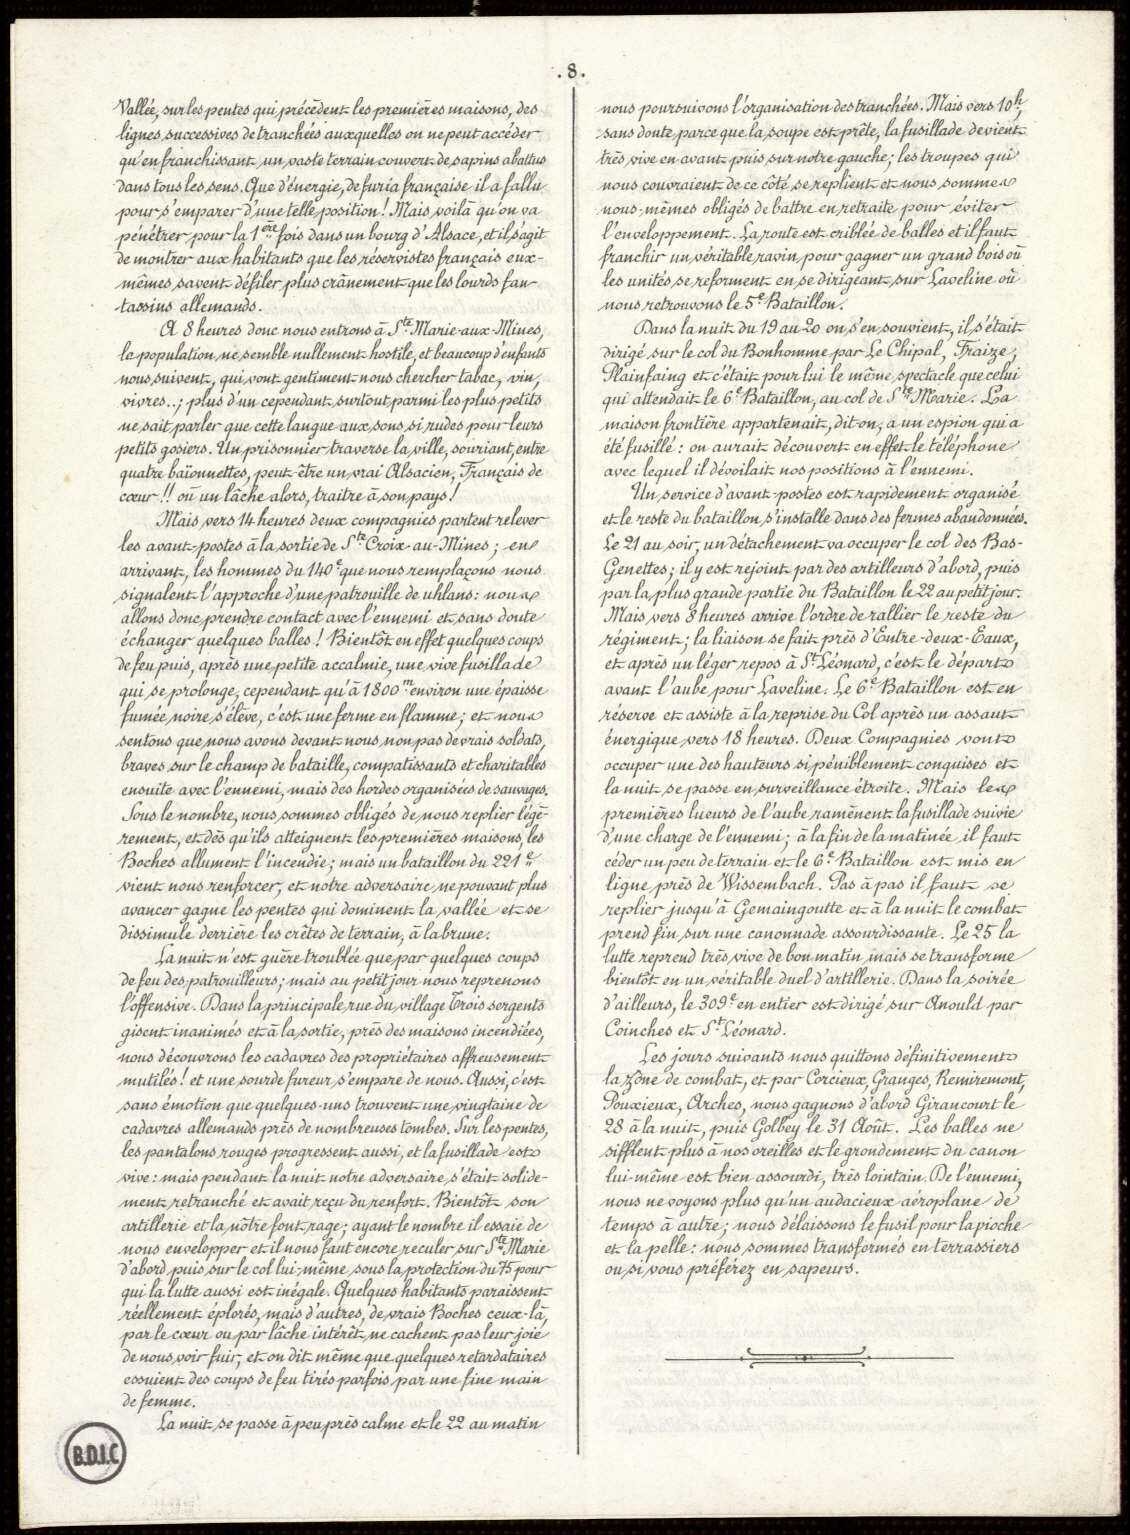 . 8 .
Vallée, sur les pentes qui précèdent les premières maisons, des
lignes successives de tranchées auxquelles on ne peut accéder
qu'en franchissant un vaste terrain couvert de sapins abattus
dans tous les sens. Que d'énergie, de furia française il a fallu
pour s'emparer d'une telle position ! Mais voilà qu'on va
pénétrer pour la 1ère fois dans un bourg d'Alsace, et il s'agit
de montrer aux habitants que les réservistes français eux-
mêmes savent défiler plus crânement que les lourds fan-
tassins allemands.
A 8 heures donc nous entrons à Ste Marie-aux-Mines,
la population ne semble nullement hostile, et beaucoup d'enfants
nous suivent, qui vont gentiment nous chercher tabac, vin,
vivres..; plus d'un cependant surtout parmi les plus petits
ne sait parler que cette langue aux sons si rudes pour leurs
petits gosiers. Un prisonnier traverse la ville, souriant, entre
quatre baïonnettes, peut être un vrai Alsacien, Français de
cœur !! ou un lâche alors, traitre à son pays !
Mais vers 14 heures deux compagnies partent relever
les avant-postes à la sortie de Ste Croix-au-Mines ; en
arrivant, les hommes du 140e que nous remplaçons nous
signalent l'approche d'une patrouille de uhlans : nous
allons donc prendre contact avec l'ennemi et sans doute
échanger quelques balles ! Bientôt en effet quelques coups
de feu puis, après une petite accalmie, une vive fusillade
qui se prolonge, cependant qu'à 1800m environ une épaisse
fumée noire s'élève, c'est une ferme en flamme ; et nous
sentons que nous avons devant nous non pas de vrais soldats,
braves sur le champ de bataille, compatissants et charitables
ensuite avec l'ennemi, mais des hordes organisées de sauvages.
Sous le nombre, nous sommes obligés de nous replier légè-
rement, et dès qu'ils atteignent les premières maisons, les
Boches allument l'incendie ; mais un bataillon du 221e
vient nous renforcer, et notre adversaire ne pouvant plus
avancer gagne les pentes qui dominent la vallée et se
dissimule derrière les crêtes de terrain, à la brune.
La nuit n'est guère troublée que par quelques coups
de feu des patrouilleurs ; mais au petit jour nous reprenons
l'offensive. Dans la principale rue du village Trois sergents
gisent inanimés et à la sortie, près des maisons incendiées,
nous découvrons les cadavres des propriétaires affreusement
mutilés ! et une sourde fureur s'empare de nous. Aussi, c'est
sans émotion que quelques-uns trouvent une vingtaine de
cadavres allemands près de nombreuses tombes. Sur les pentes,
les pantalons rouges progressent aussi, et la fusillade est
vive : mais pendant la nuit notre adversaire s'était solide-
ment retranché et avait reçu du renfort. Bientôt son
artillerie et la nôtre font rage ; ayant le nombre il essaie de
nous envelopper et il nous faut encore reculer sur Ste Marie
d'abord puis sur le col lui-même sous la protection du 75 pour
qui la lutte aussi est inégale. Quelques habitants paraissent
réellement éplorés, mais d'autres, de vrais Boches ceux-là,
par le cœur ou par lâche intérêt ne cachent pas leur joie
de nous voir fuir, et on dit même que quelques retardataires
essuient des coups de feu tirés parfois par une fine main
de femme.
La nuit se passe à peu près calme et le 22 au matin
nous poursuivons l'organisation des tranchées. Mais vers 10h,
sans doute parce que la soupe est prête, la fusillade devient
très vive en avant puis sur notre gauche ; les troupes qui
nous couvraient de ce côté se replient et nous sommes
nous-mêmes obligés de battre en retraite pour éviter
l'enveloppement. La route est criblée de balles et il faut
franchir un véritable ravin pour gagner un grand bois où
les unités se reforment en se dirigeant sur Laveline où
nous retrouvons le 5e Bataillon.
Dans la nuit du 19 au 20 on s'en souvient, il s'était
dirigé sur le col du Bonhomme par Le Chipal, Fraize,
Plainfaing et c'était pour lui le même spectacle que celui
qui attendait le 6e Bataillon, au col de Ste Marie. La
maison frontière appartenait, dit-on, à un espion qui a
été fusillé : on aurait découvert en effet le téléphone
avec lequel il dévoilait nos positions à l'ennemi.
Un service d'avant-postes est rapidement organisé
et le reste du bataillon s'installe dans des fermes abandonnées.
Le 21 au soir, un détachement va occuper le col des Bas-
Genettes ; il y est rejoint par des artilleurs d'abord, puis
par la plus grande partie du Bataillon le 22 au petit jour.
Mais vers 8 heures arrive l'ordre de rallier le reste du
régiment ; la liaison se fait près d'Entre-deux-Eaux,
et après un léger repos à St Léonard, c'est le départ
avant l'aube pour Laveline. Le 6e Bataillon est en
réserve et assiste à la reprise du Col après un assaut
énergique vers 18 heures. Deux Compagnies vont
occuper une des hauteurs si péniblement conquises et
la nuit se passe en surveillance étroite. Mais les
premières lueurs de l'aube ramènent la fusillade suivie
d'une charge de l'ennemi ; à la fin de la matinée il faut
céder un peu de terrain et le 6e Bataillon est mis en
ligne près de Wissembach. Pas à pas il faut se
replier jusqu'à Gemaingoutte et à la nuit le combat
prend fin sur une canonnade assourdissante. Le 25 la
lutte reprend très vive de bon matin mais se transforme
bientôt en un véritable duel d'artillerie. Dans la soirée
d'ailleurs, le 309e en entier est dirigé sur Anould par
Coinches et St Léonard.
Les jours suivants nous quittons définitivement
la zône de combat, et par Corcieux, Granges, Remiremont,
Pouxieux, Arches, nous gagnons d'abord Girancourt le
28 à la nuit, puis Golbey le 31 Août. Les balles ne
sifflent plus à nos oreilles et le grondement du canon
lui-même est bien assourdi, très lointain. De l'ennemi,
nous ne voyons plus qu'un audacieux aéroplane de
temps à autre ; nous délaissons le fusil pour la pioche
et la pelle : nous sommes transformés en terrassiers
ou si vous préférez en sapeurs.
B.D.I.C